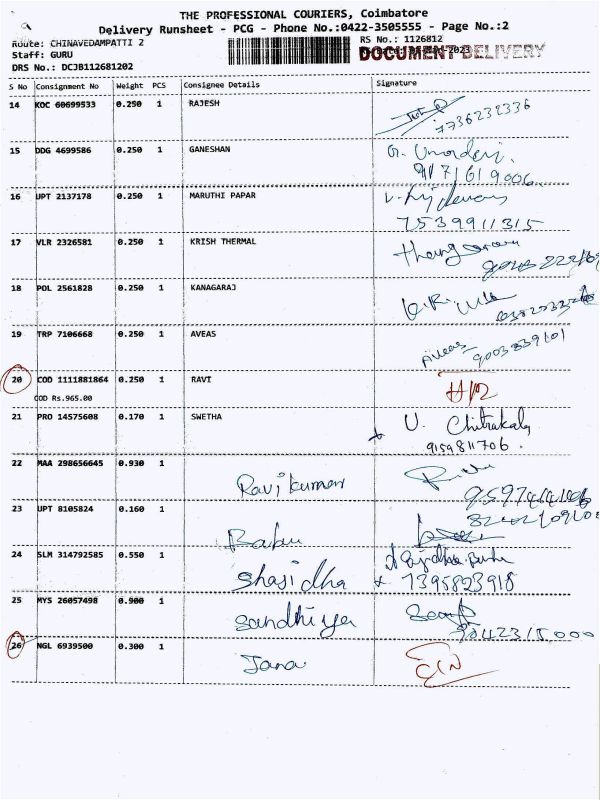 THE PROFESSIONAL COURIERS, Coimbatore
Delivery Runsheet - PCG - Phone No.:0422-3505555 - Page No.:2
Route: CHINAVEDAMPATTI 2
RS No.: 1126812
Staff: GURU
DOCUMENT DELIVERY
DRS No.: DCJB112681202
S No Consignment No Weight PCS Consignee Details Signature
14 KOC 60699533 0.250 1 RAJESH
7736232336
15 DDG 4699586 0.250 1 GANESHAN
16 UPT 2137178 0.250 1 MARUTHI PAPAR
7539911315
17 VLR 2326581 0.250 1 KRISH THERMAL
18 POL 2561828 0.250 1 KANAGARAJ
19 TRP 7106668 0.250 1 AVEAS
AVEAS 9003839101
20 COD 1111881864 0.250 1 RAVI
COD Rs.965.00
21 PRO 14575608 0.170 1 SWETHA U. Chitrakala
9159811706.
22 MAA 298656645 0.930 1 Ravikumar
23 UPT 8105824 0.160 1 Babu
24 SLM 314792585 0.550 1 Shasidha
7395823918
25 MYS 26057498 0.900 1 Sandhiya
26 NGL 6939500 0.300 1 Jana